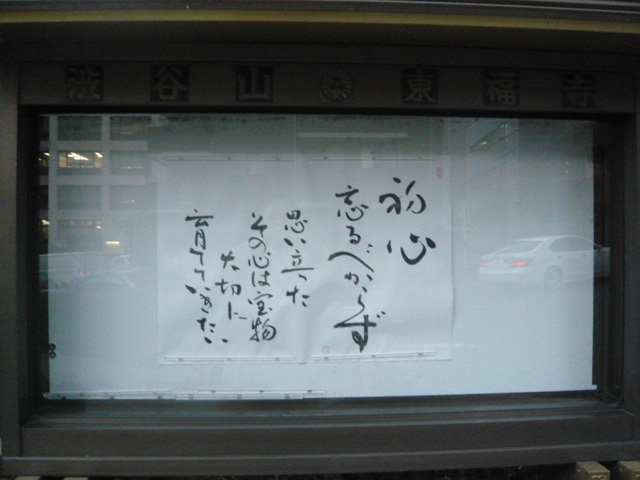 渋谷山 東福寺
初心
忘るべからず
思い立った
その心は宝物
大切に
育てていきたい